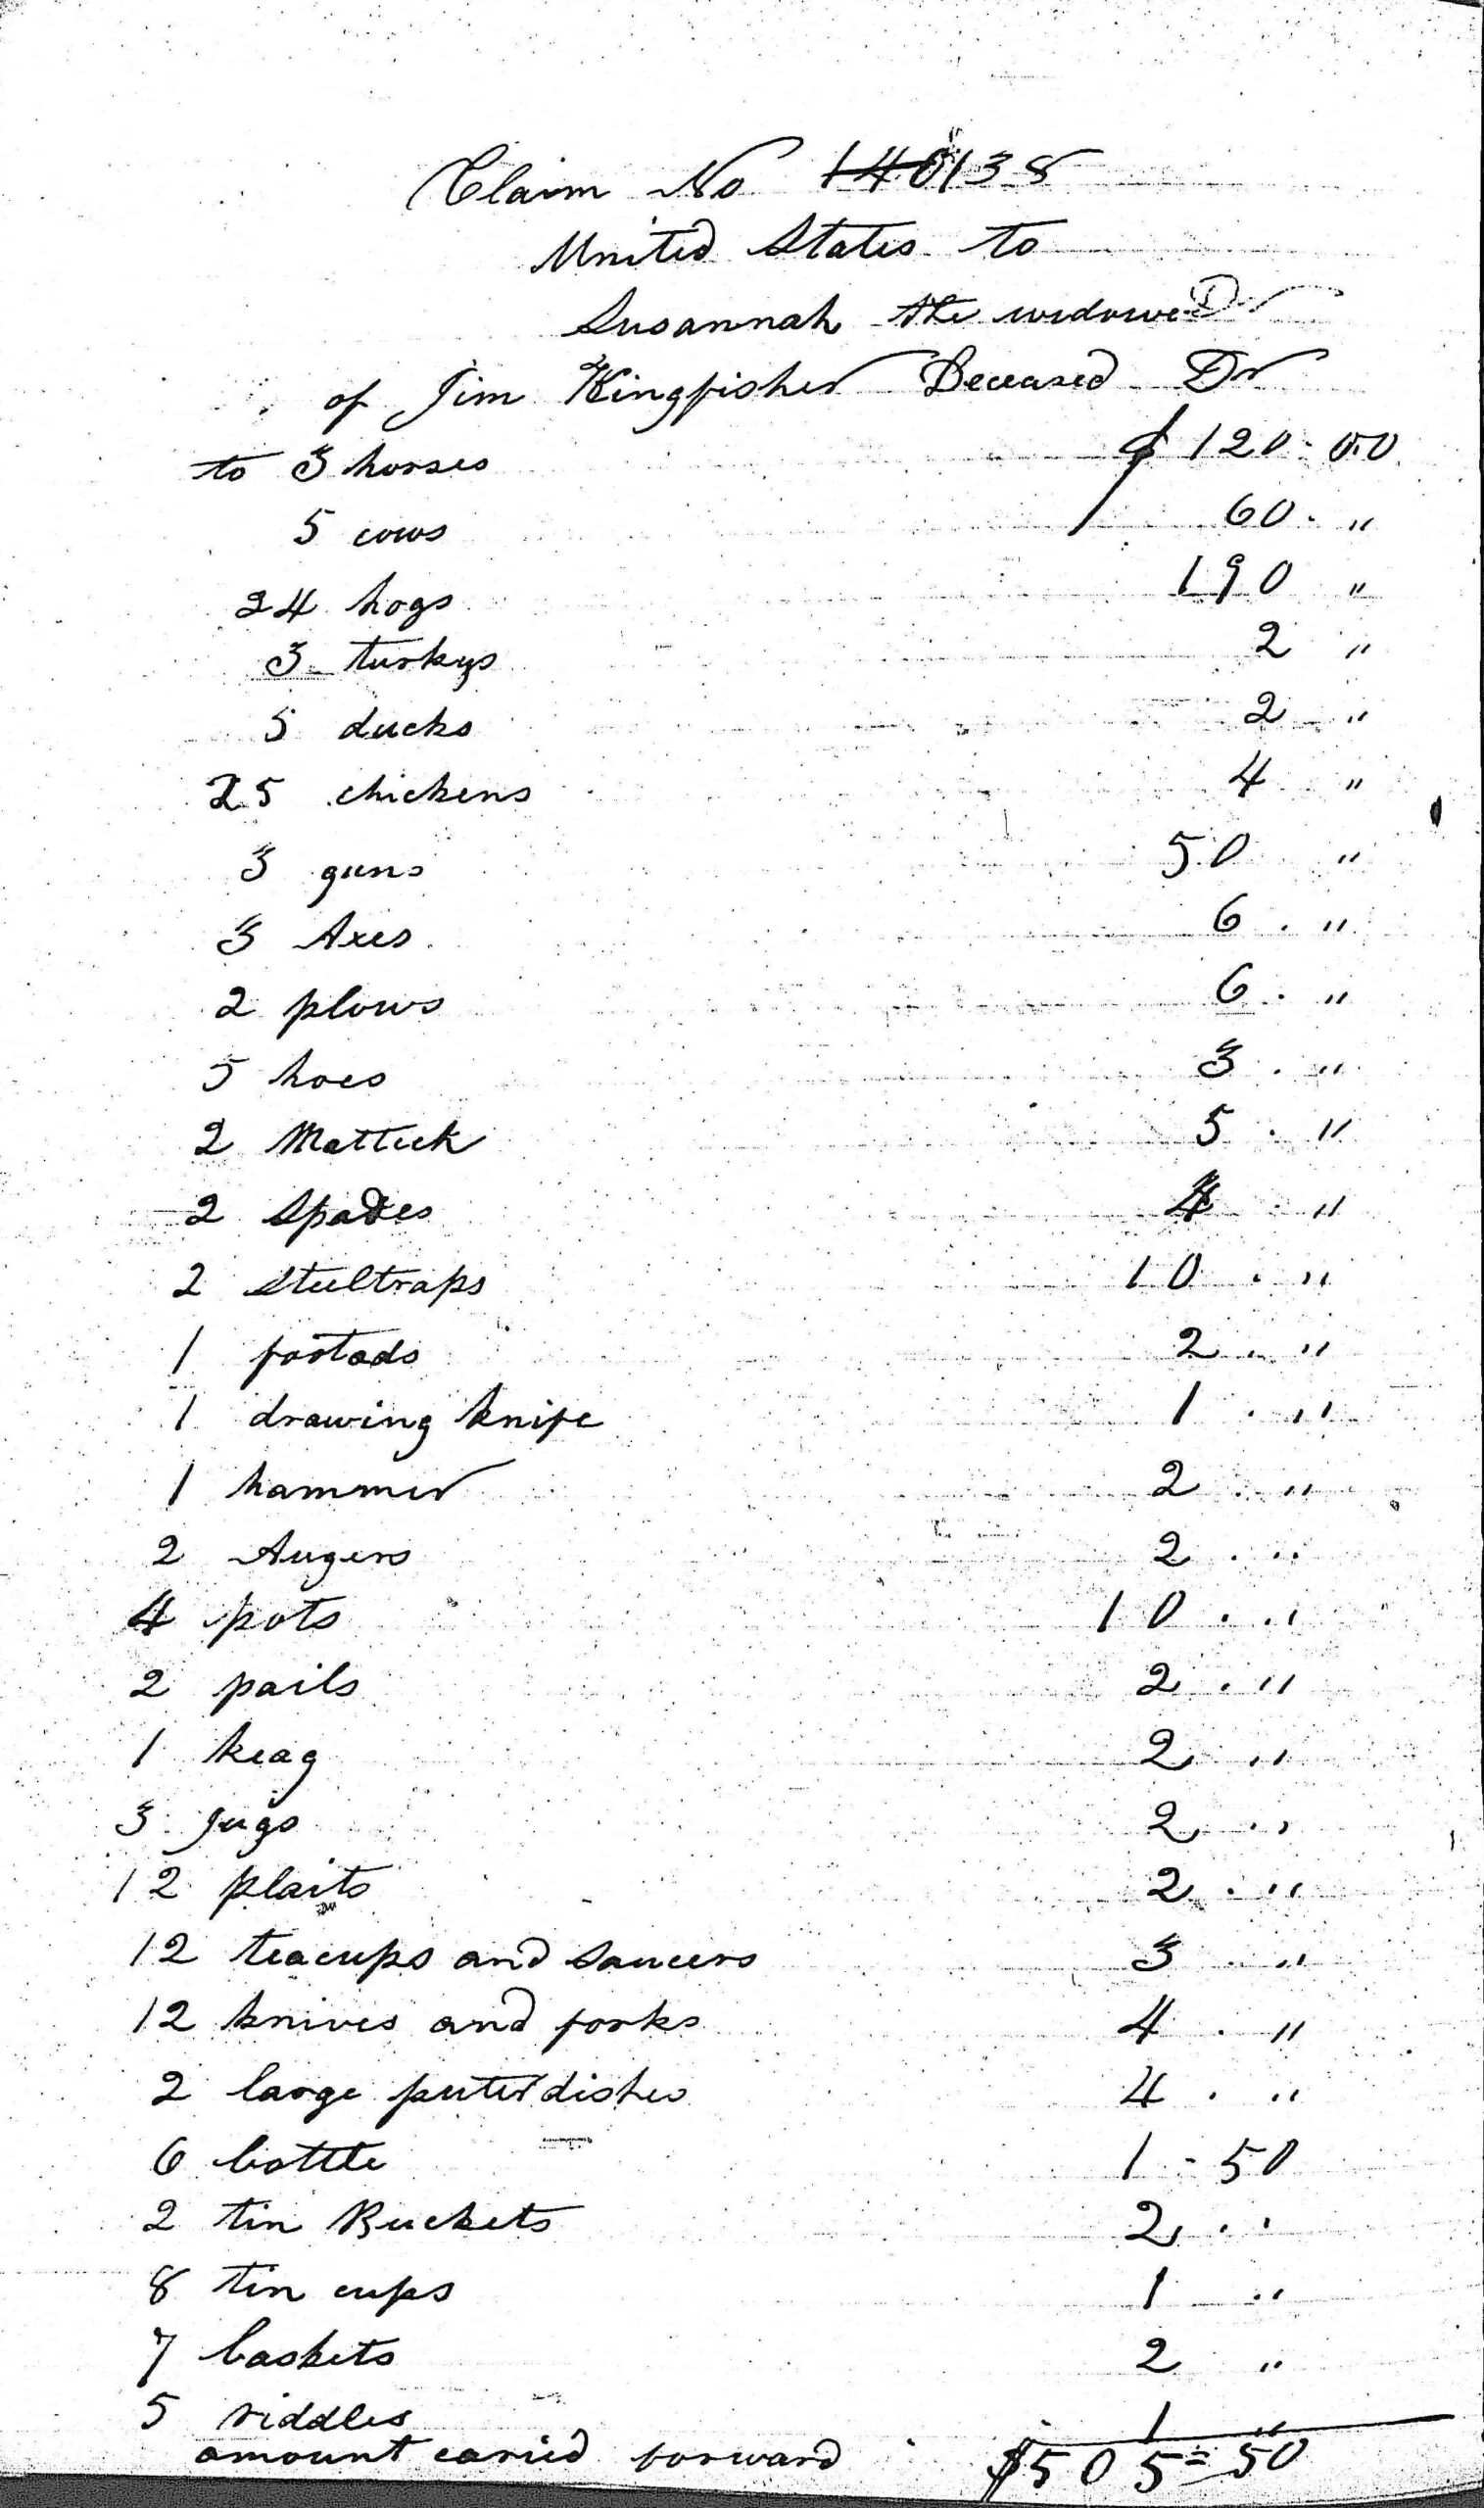 Claim No 140138
United States to
Susannah the widowe Dr
of Jim Kingfisher Deceased Dr
to 3 horses $120-00
5 cows 60. "
24 hogs 190 "
3 turkys 2 "
5 ducks 2 "
25 chickens 4 "
3 guns 50 "
3 Axes 6 . "
2 plows 6 . "
5 hoes 3 . "
2 Mattuck 5 . "
2 Spades 4 . "
2 Steeltraps 10 . "
1 footads 2 . "
1 drawing knife 1 . "
1 hammer 2 . "
2 Augers 2 . "
4 pots 10 . "
2 pails 2 . "
1 keag 2 . "
3 Jugs 2 . "
12 plaits 2 . "
12 teacups and Saucers 3 . "
12 knives and forks 4 . "
2 large puter dishes 4 . "
6 bottle 1-50
2 tin Buckets 2 . "
8 tin cups 1 "
7 baskets 2 "
5 riddles 1 "
amount caried forward $505=50